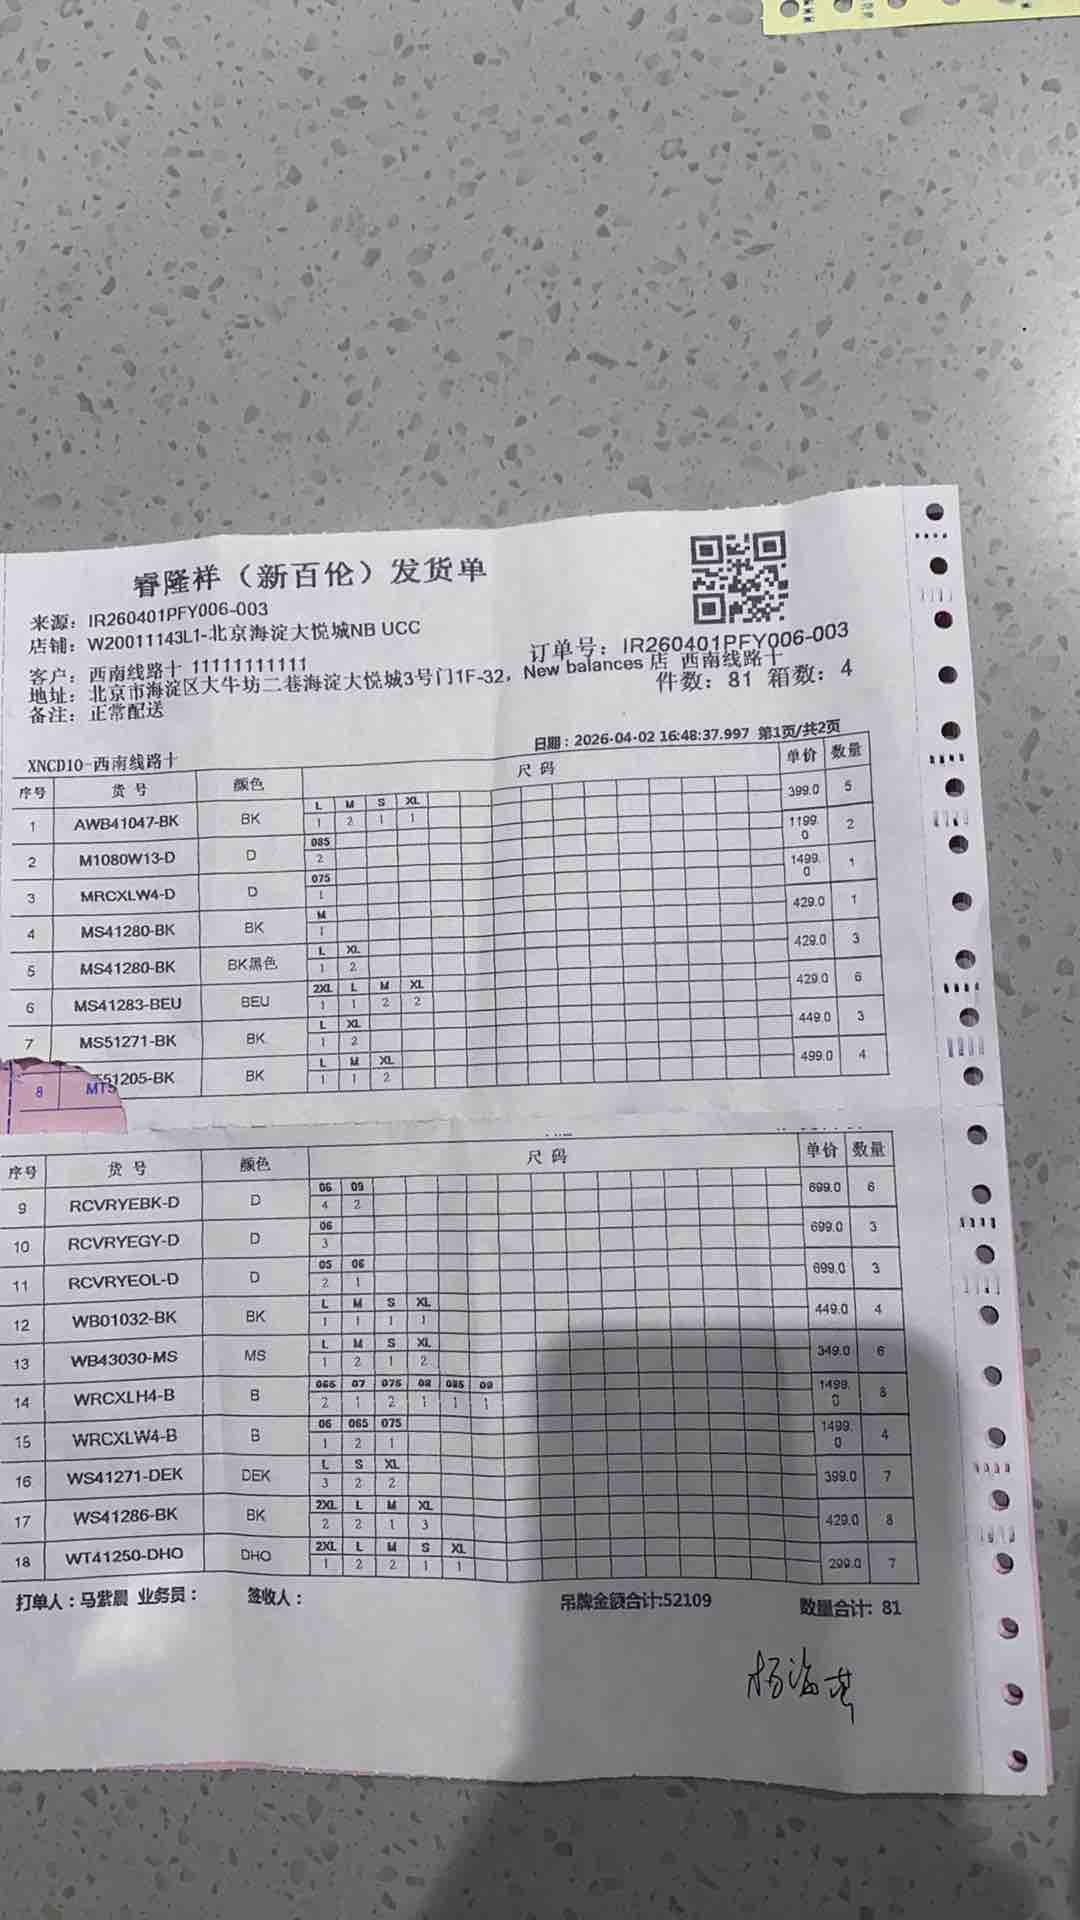 睿隆祥（新百伦）发货单
来源：IR260401PFY006-003
店铺：W20011143L1-北京海淀大悦城NB UCC
订单号：IR260401PFY006-003
客户：西南线路十 11111111111
地址：北京市海淀区大牛坊二巷海淀大悦城3号门1F-32，New balances 店 西南线路十
备注：正常配送
件数：81 箱数：4
日期：2026-04-02 16:48:37.997 第1页/共2页
XNCD10-西南线路十
序号 货 号 颜色 尺 码 单价 数量
L M S XL
1 AWB41047-BK BK 1 2 1 1 399.0 5
085
2 M1080W13-D D 2 1199.0 2
075
3 MRCXLW4-D D 1 1499.0 1
M
4 MS41280-BK BK 1 429.0 1
L XL
5 MS41280-BK BK黑色 1 2 429.0 3
2XL L M XL
6 MS41283-BEU BEU 1 1 2 2 429.0 6
L XL
7 MS51271-BK BK 1 2 449.0 3
L M XL
8 MT51205-BK BK 1 1 2 499.0 4
序号 货 号 颜色 尺 码 单价 数量
06 09
9 RCVRYEBK-D D 4 2 699.0 6
06
10 RCVRYEGY-D D 3 699.0 3
05 06
11 RCVRYEOL-D D 2 1 699.0 3
L M S XL
12 WB01032-BK BK 1 1 1 1 449.0 4
L M S XL
13 WB43030-MS MS 1 2 1 2 349.0 6
065 07 075 08 085 09
14 WRCXLH4-B B 2 1 2 1 1 1 1499.0 8
06 065 075
15 WRCXLW4-B B 1 2 1 1499.0 4
L S XL
16 WS41271-DEK DEK 3 2 2 399.0 7
2XL L M XL
17 WS41286-BK BK 2 2 1 3 429.0 8
2XL L M S XL
18 WT41250-DHO DHO 1 2 2 1 1 299.0 7
打单人：马紫晨 业务员： 签收人： 吊牌金额合计:52109 数量合计: 81